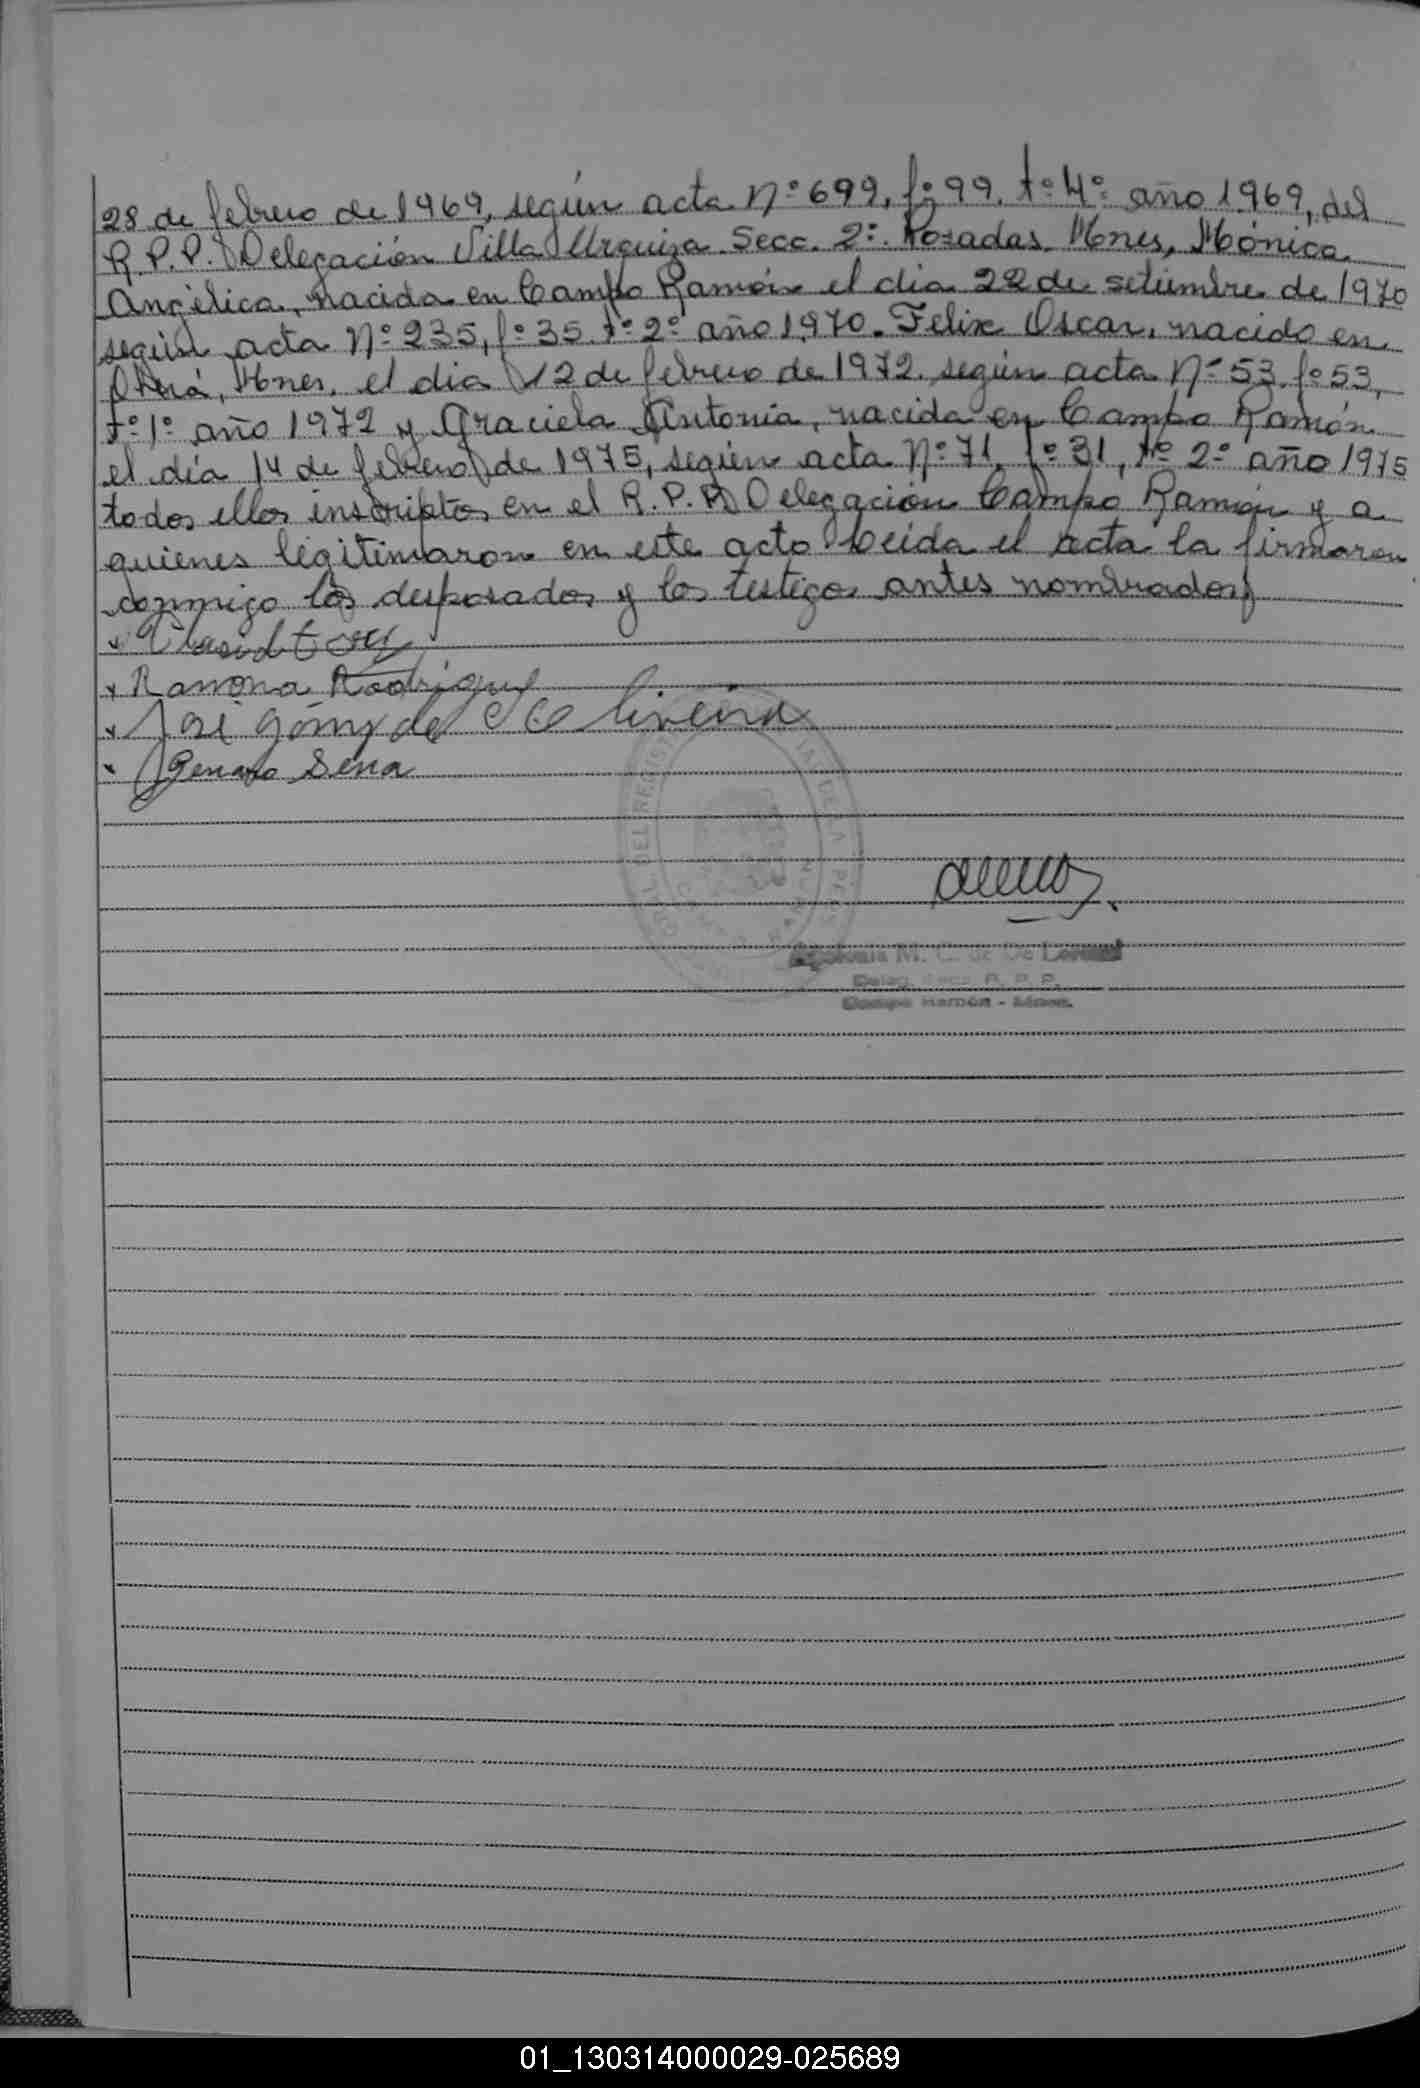 28 de febrero de 1969, según acta Nº 699, fº 99, tº 4º año 1969, del
R.P.P. Delegación Villa Urquiza Secc. 2º. Posadas, Mnes, Mónica
Angélica, nacida en Campo Ramón el día 22 de setiembre de 1970
según acta Nº 235, fº 35 tº 2º año 1970. Felix Oscar, nacido en
Oberá, Mnes, el día 12 de febrero de 1972. según acta Nº 53 fº 53,
tº 1º año 1972 y Graciela Antonia, nacida en Campo Ramón
el día 14 de febrero de 1975, según acta Nº 71, fº 31, tº 2º año 1975
todos ellos inscriptos en el R.P.P. Delegación Campo Ramón y a
quienes legitimaron en este acto Leída el acta la firmaron
conmigo los desposados y los testigos antes nombrados
Ramona Rodriguez
José Gómez de Oliveira
Genaro Sena
DEL REGIST
M. C. de De Lorenzi
Deleg. Secc. R. P. P.
Campo Ramón - Mnes.
01_130314000029-025689